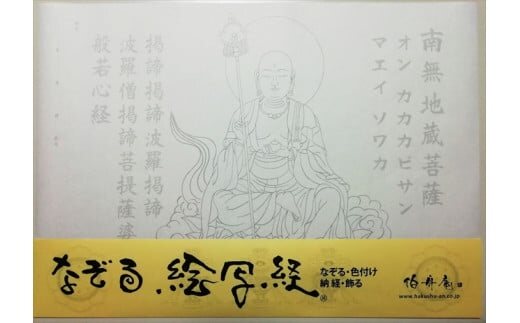 南無地蔵菩薩
オン カカカビサン
マエイ ソワカ
掲諦掲諦波羅掲諦
波羅僧掲諦菩提薩婆
般若心経
なぞる絵写経
なぞる・色付け
納経・飾る
www.hakushu-an.co.jp